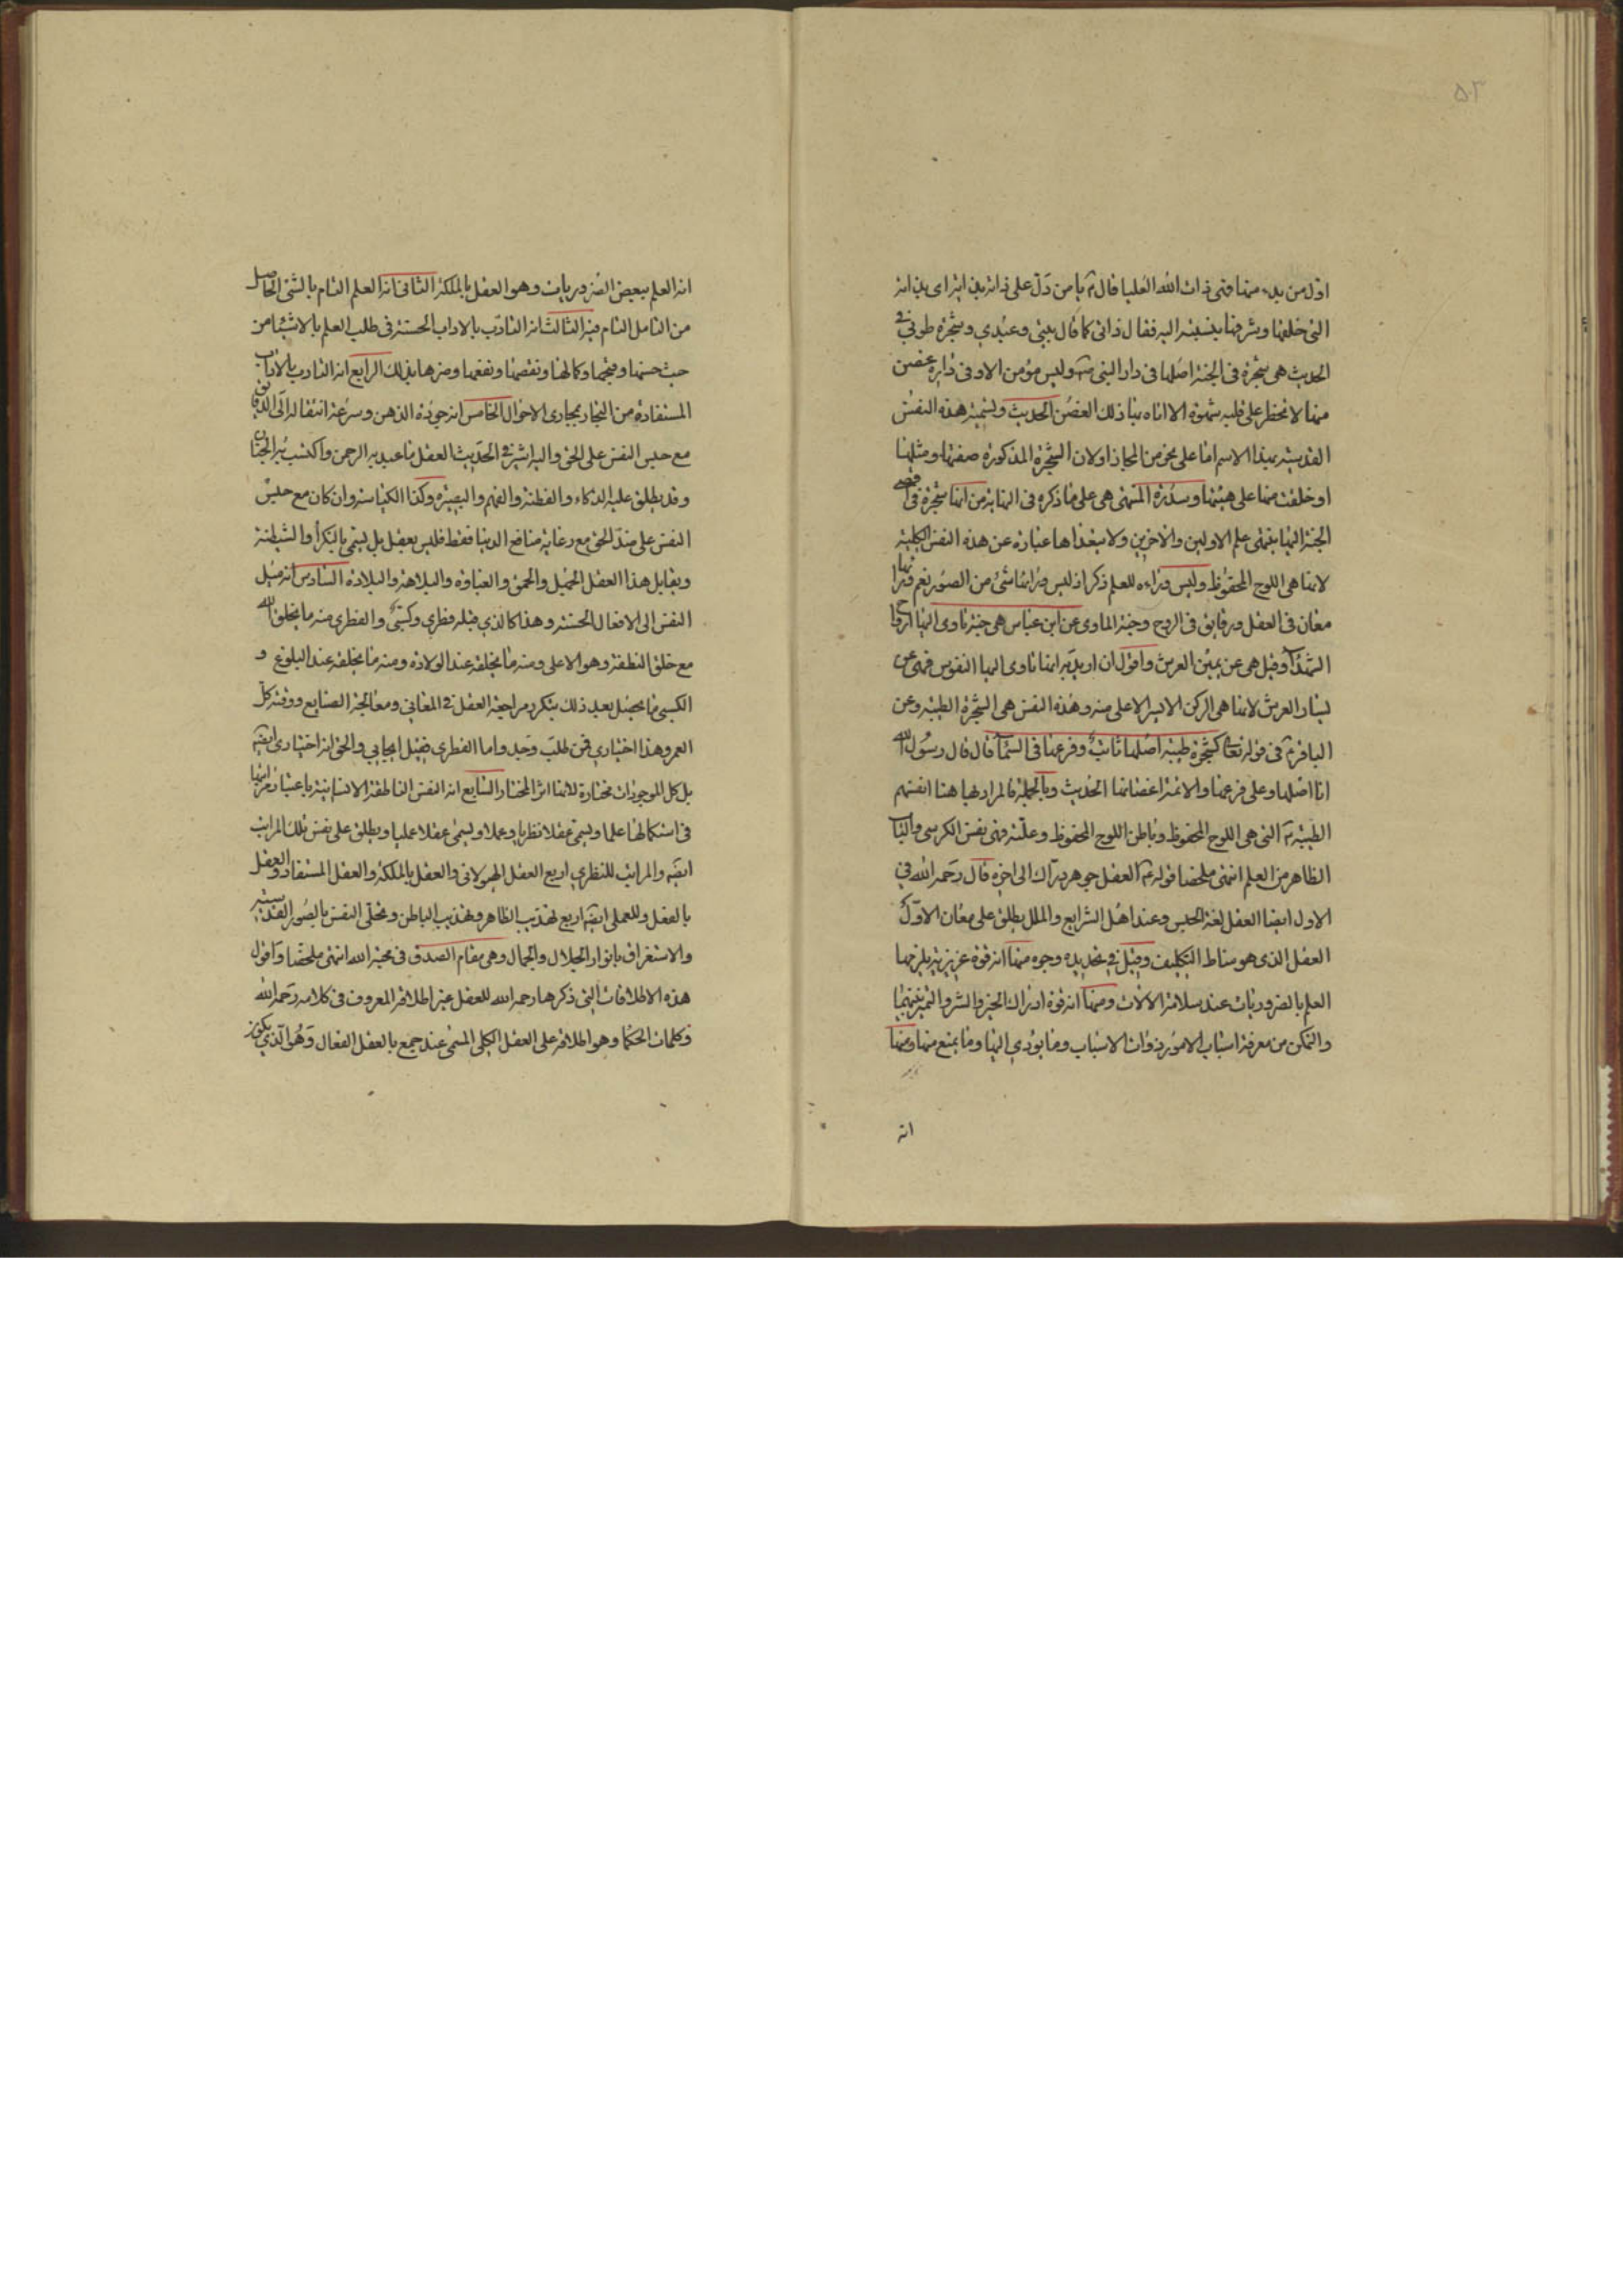 اول من بدء منها فهى ذات الله العليا قال ع يا من دل على ذاته بذاته اى بذاته
التى خلقها وشرفها بنسبته اليه فقال ذاتى كما قال بيتى وعبدي وشجرة طوبى فى
الحديث هى شجرة فى الجنة اصلها فى دار النبى ص وليس مؤمن الا وفى داره غصن
منها لا تخطر على قلبه شهوة الا اتاه بها ذلك الغصن الحديث وتسمية هذه النفس
القدسية بهذا الاسم اما على نحو من المجاز او لان الشجرة المذكورة صفتها ومثلها
او خلقت منها على هيئتها وسدرة المنتهى هى على ما ذكره فى النهاية من انها شجرة فى اقصى
الجنة اليها ينتهى علم الاولين والاخرين ولا يتعداها عبارة عن هذه النفس الكلية
لانها هى اللوح المحفوظ وليس وراءه للعلم ذكر اذ ليس وراءها شئ من الصور نعم وراءها
معان فى العقل ورقايق فى الروح وجنة الماوى عن ابن عباس هى جنة تاوى اليها ارواح
الشهداء وقيل هى عن يمين العرش واقول ان اريد به انها تاوى اليها النفوس فهى عن
يسار العرش لانها هى الركن الايسر الاعلى منه وهذه النفس هى الشجرة الطيبة وعن
الباقر ع فى قوله تعالى كشجرة طيبة اصلها ثابت وفرعها فى السماء قال قال رسول الله
انا اصلها وعلى فرعها والائمة اغصانها الحديث وبالجملة فالمراد بها هنا انفسهم
الطيبة ع التى هى اللوح المحفوظ وباطن اللوح المحفوظ وعلته فهى نفس الكرسى والباب
الظاهر من العلم انتهى ملخصا قوله ع العقل جوهر درّاك الى اخره قال رحمه الله فى
الاول ايضا العقل لغة الحبس وعند اهل الشرايع والملل يطلق على معان الاول
العقل الذى هو مناط التكليف وقيل فى تحديده وجوه منها انه قوة غريزية يلزمها
العلم بالضروريات عند سلامة الالات ومنها انه قوة ادراك الخير والشر والتميز بينهما
والتمكن من معرفة اسباب الامور ذوات الاسباب وما يؤدي اليها وما يمنع منها ومنها
انه
انه العلم ببعض الضروريات وهو العقل بالملكة الثانى انه العلم التام بالشئ الحاصل
من التامل التام فيه الثالث انه التادب بالاداب الحسنة فى طلب العلم بالاشياء من
حيث حسنها وقبحها وكمالها ونقصها ونفعها وضرها بذلك الرابع انه التادب بالاداب
المستفادة من التجار بمجارى الاحوال الخامس انه جودة الذهن وسرعة انتقاله الى الدقائق
مع حبس النفس على الحق واليه اشير فى الحديث العقل ما عبد به الرحمن واكتسب به الجنان
وقد يطلق عليه الذكاء والفطنة والفهم والبصيرة وكذا الكياسة وان كان مع حبس
النفس على ضد الحق مع رعاية مناضع الدنيا فقط فليس بعقل بل يسمى بالنكراء والشيطنة
ويقابل هذا العقل الجهل والحمق والغباوة والبلاهة والبلادة السادس انه ميل
النفس الى الافعال الحسنة وهذا كالذي قبله فطري وكسبى والفطري منه ما يخلق الله
مع خلق النطفة وهو الاعلى ومنه ما يخلقه عند الولادة ومنه ما يخلقه عند البلوغ و
الكسبى ما يحصل بعد ذلك بتكرر مراجعة العقل فى المعانى ومعالجة الصنايع ووقته كل
العمر وهذا اختياري فمن طلب وجد واما الفطري فقيل ايجابي والحق انه اختياري ايضا
بل كل الموجودات مختارة لانها اثر المختار السابع انه النفس الناطقة الانسانية باعتبار مراتبها
فى استكمالها علما ويسمى عقلا نظريا وعملا ويسمى عقلا عمليا ويطلق على نفس تلك المراتب
ايضا والمراتب للنظري اربع العقل الهيولانى والعقل بالملكة والعقل المستفاد والعقل
بالفعل وللعملى ايضا اربع تهذيب الظاهر وتهذيب الباطن وتحلى النفس بالصور القدسية
والاستغراق بانوار الجلال والجمال وهى مقام الصدق فى محبة الله انتهى ملخصا واقول
هذه الاطلاقات التى ذكرها رحمه الله للعقل غير اطلاقه المعروف فى كلامه رحمه الله
وكلمات الحكماء وهو اطلاقه على العقل الكلى المسمى عند جمع بالعقل الفعال وهو الذي يكون